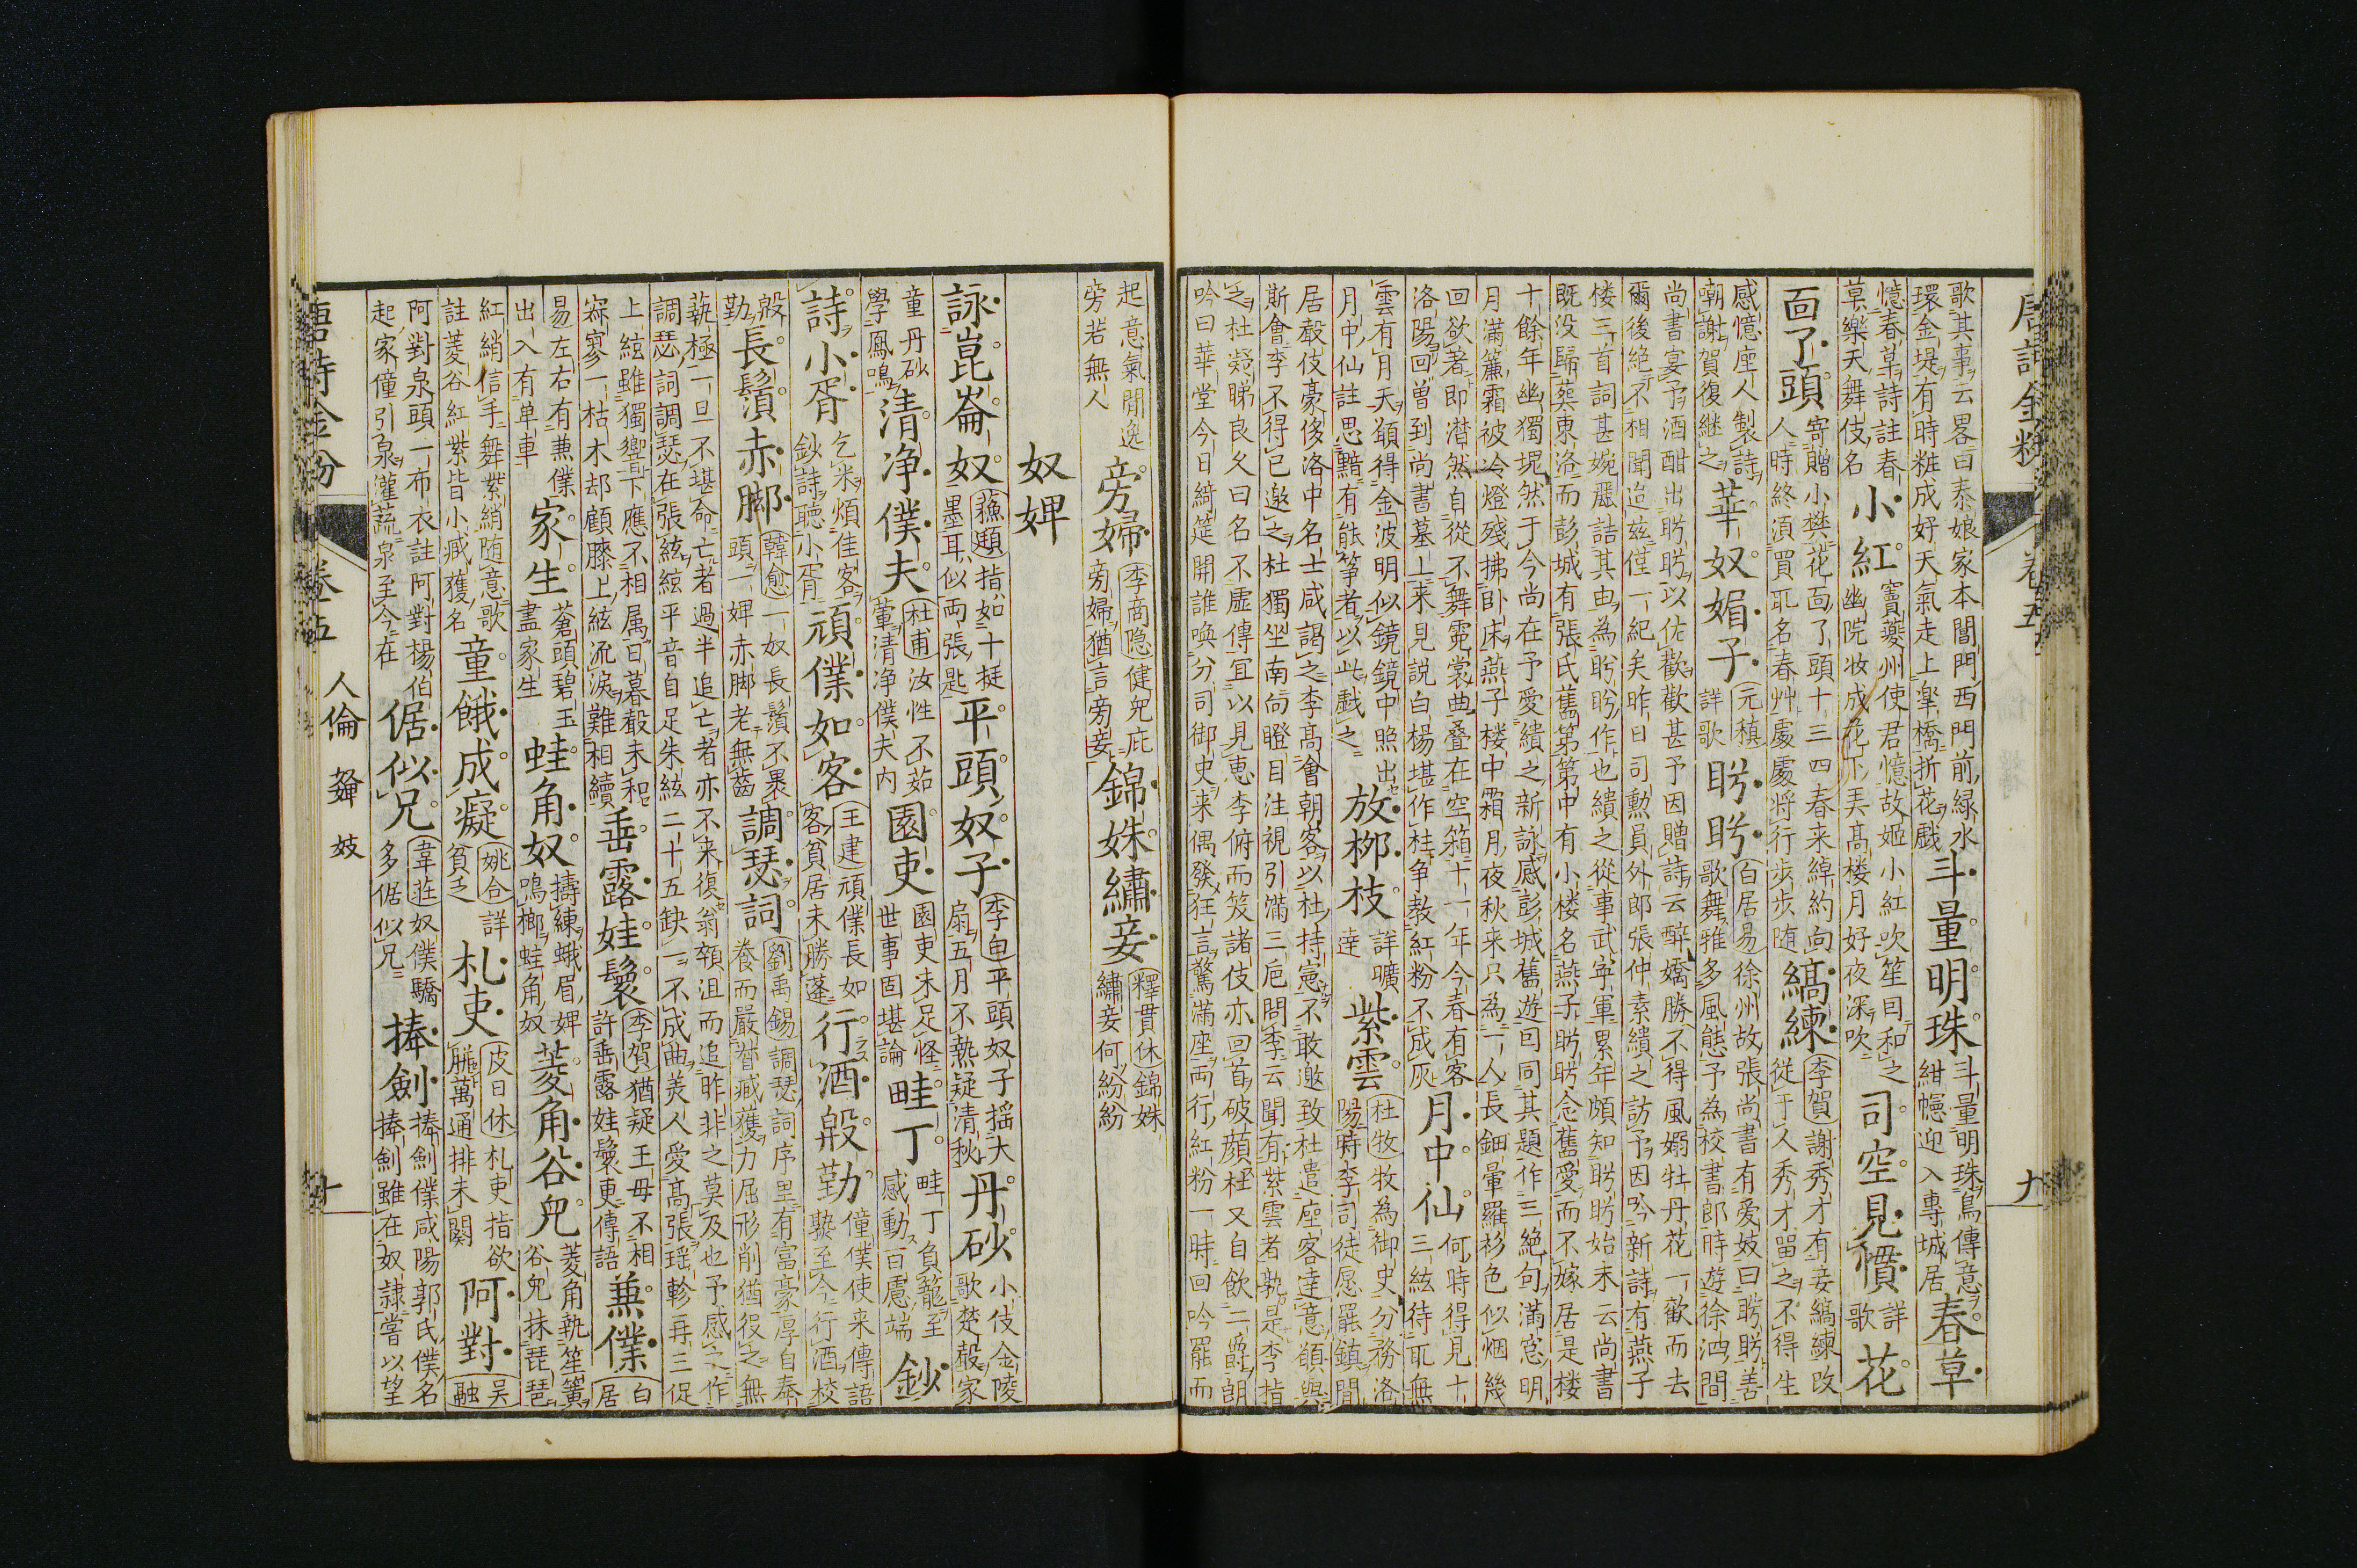 唐詩金粉 卷五 九
歌其事云畧曰泰娘家本閶門西門前緑水
環金堤有時粧成好天氣走上皐橋折花戯
斗量明珠
斗量明珠鳥傳意
紺幰迎入專城居
春草
憶春草詩註春
草樂天舞伎名
小紅
竇蘷州使君憶故姬小紅吹笙曰和之
幽院妝成花下弄髙楼月好夜深吹
司空見慣
詳
歌
花
靣了頭
寄贈小樊花靣了頭十三四春来綽約向
人時終湏買取名春艸處處将行歩歩随
縞練
李賀謝秀才有妾縞練改
從于人秀才留之不得生
感憶座人製詩
嘲謝賀復継之
華奴媚子
元稹
詳歌
盻盻
白居易徐州故張尚書有爱妓曰盻盻善
歌舞雅多風態予為校書郎時遊徐泗間
尚書宴予酒酣出盻盻以佐歡歡甚予因贈詩云醉嬌勝不得風嫋牡丹花一歡而去
爾後絶不相聞迨兹僅一紀矣昨日司勳員外郎張仲素繢之訪予因吟新詩有燕子
楼三首詞甚婉麗詰其由為盻盻作也繢之從事武寕軍累年頗知盻盻始末云尚書
既没歸葬東洛而彭城有張氏舊第第中有小楼名燕子盻盻念舊愛而不嫁居是楼
十餘年幽獨塊然于今尚在予愛繢之新詠感彭城舊遊因同其題作三絶句満窓明
月満簾霜被冷燈殘拂卧床燕子楼中霜月夜秋来只為一人長鈿暈羅衫色似烟幾
回欲著即潸然自從不舞霓裳曲叠在空箱十一年今春有客
洛陽回曽到尚書墓上来見説白楊堪作柱争教紅粉不成灰
月中仙
何時得見十
三絃待取無
雲有月天願得金波明似鏡鏡中照出
月中仙註思黯有能筝者以此戯之
放栁枝
詳曠
達
紫雲
杜牧牧為御史分務洛
陽時李司徒愿罷鎮閒
居聲伎豪侈洛中名士咸謁之李髙會朝客以杜持憲不敢邀致杜遣座客達意願與
斯會李不得已邀之杜獨坐南向瞪目注視引満三巵問李云聞有紫雲者孰是李指
之杜凝睇良久曰名不虚傳宜以見惠李俯而笑諸伎亦回首破顔杜又自飲二爵朗
吟曰華堂今日綺筵開誰喚分司御史来偶發狂言驚満座両行紅粉一時回吟罷而
起意氣閒逸
旁若無人
旁婦
李商隠健皃庇
旁婦猶言旁妾
錦姝繡妾
釋貫休錦姝
繡妾何紛紛
奴婢
詠崑崙奴
蘓頲指如十挺
墨耳似両張匙
平頭奴子
李白平頭奴子揺大
扇五月不熱疑清秋
丹砂
小伎金陵
歌楚聲家
童丹砂
學鳳鳴
清净僕夫
杜甫汝性不茹
葷清净僕夫内
園吏
園吏未足怪
世事固堪論
畦丁
畦丁負籠至
感動百慮端
鈔
詩小胥
乞米煩佳客
鈔詩聴小胥
頑僕如客
王建頑僕長如
客貧居未勝蓬
行酒殷勤
僮僕使来傳語
𢡟至今行酒校
殷
勤
長鬚赤脚
韓愈一奴長鬚不褁
頭一婢赤脚老無齒
調瑟詞
劉禹錫調瑟詞序里有富豪厚自奉
養而嚴督臧獲力屈形削猶役之無
蓺極一旦不堪命亡者過半追亡者亦不来復翁顇沮而追昨非之莫及也予感之作
調瑟詞調瑟在張絃絃平音自足朱絃二十五缺一不成曲美人愛髙張瑶軫再三促
上絃雖獨響下應不相属日暮聲未和
寂寥一枯木却顧膝上絃流淚難相續
垂露娃鬟
李賀猶疑王母不相
許垂露娃鬟更傳語
兼僕
白
居
易左右有兼僕
出入有単車
家生
蒼頭碧玉
盡家生
蛙角奴
擣練蛾眉婢
鳴榔蛙角奴
菱角谷皃
菱角執笙簧
谷皃抹琵琶
紅綃信手舞紫綃随意歌
註菱谷紅紫皆小臧獲名
童餓成癡
姚合詳
貧乏
札吏
皮日休札吏指欲
胝萬通排未闋
阿對
吴
融
阿對泉頭一布衣註阿對楊伯
起家僮引泉灌蔬泉至今在
倨似兄
韋莊奴僕驕
多倨似兄
捧劍
捧劍僕咸陽郭氏僕名
捧劍雖在奴隷嘗以望
唐詩金粉 卷五 人倫 婢 妓 十